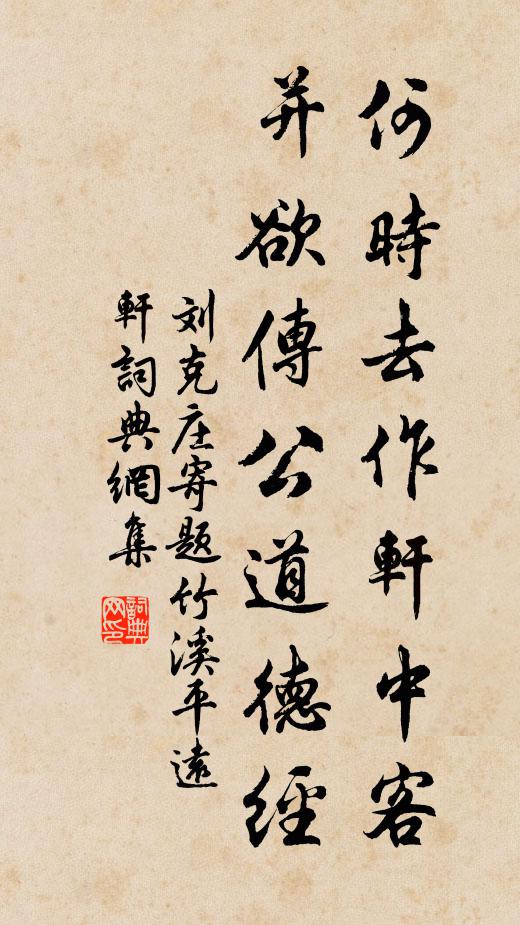 何時去作軒中客
并欲傳公道德經
刘克庄寄题竹溪平遠
軒詞典網集
詞典
网印